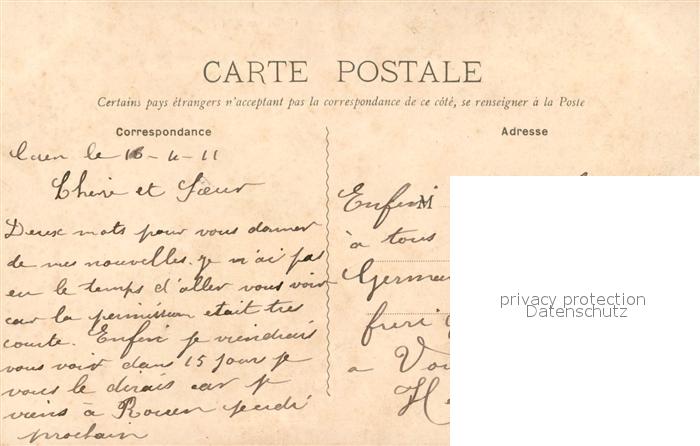 CARTE POSTALE
Certains pays étrangers n'acceptant pas la correspondance de ce côté, se renseigner à la Poste
Correspondance
Caen le 16-4-11
Chere et Sœur
Deux mots pour vous donner
de mes nouvelles. je n'ai pas
eu le temps d'aller vous voir
car la permission etait tres
courte. Enfin je viendrais
vous voir dans 15 jours je
vous le dirais car je
viens à Rouen jeudi
prochain
Adresse
M
Enfin
à tous
German
a Vou
privacy protection
Datenschutz